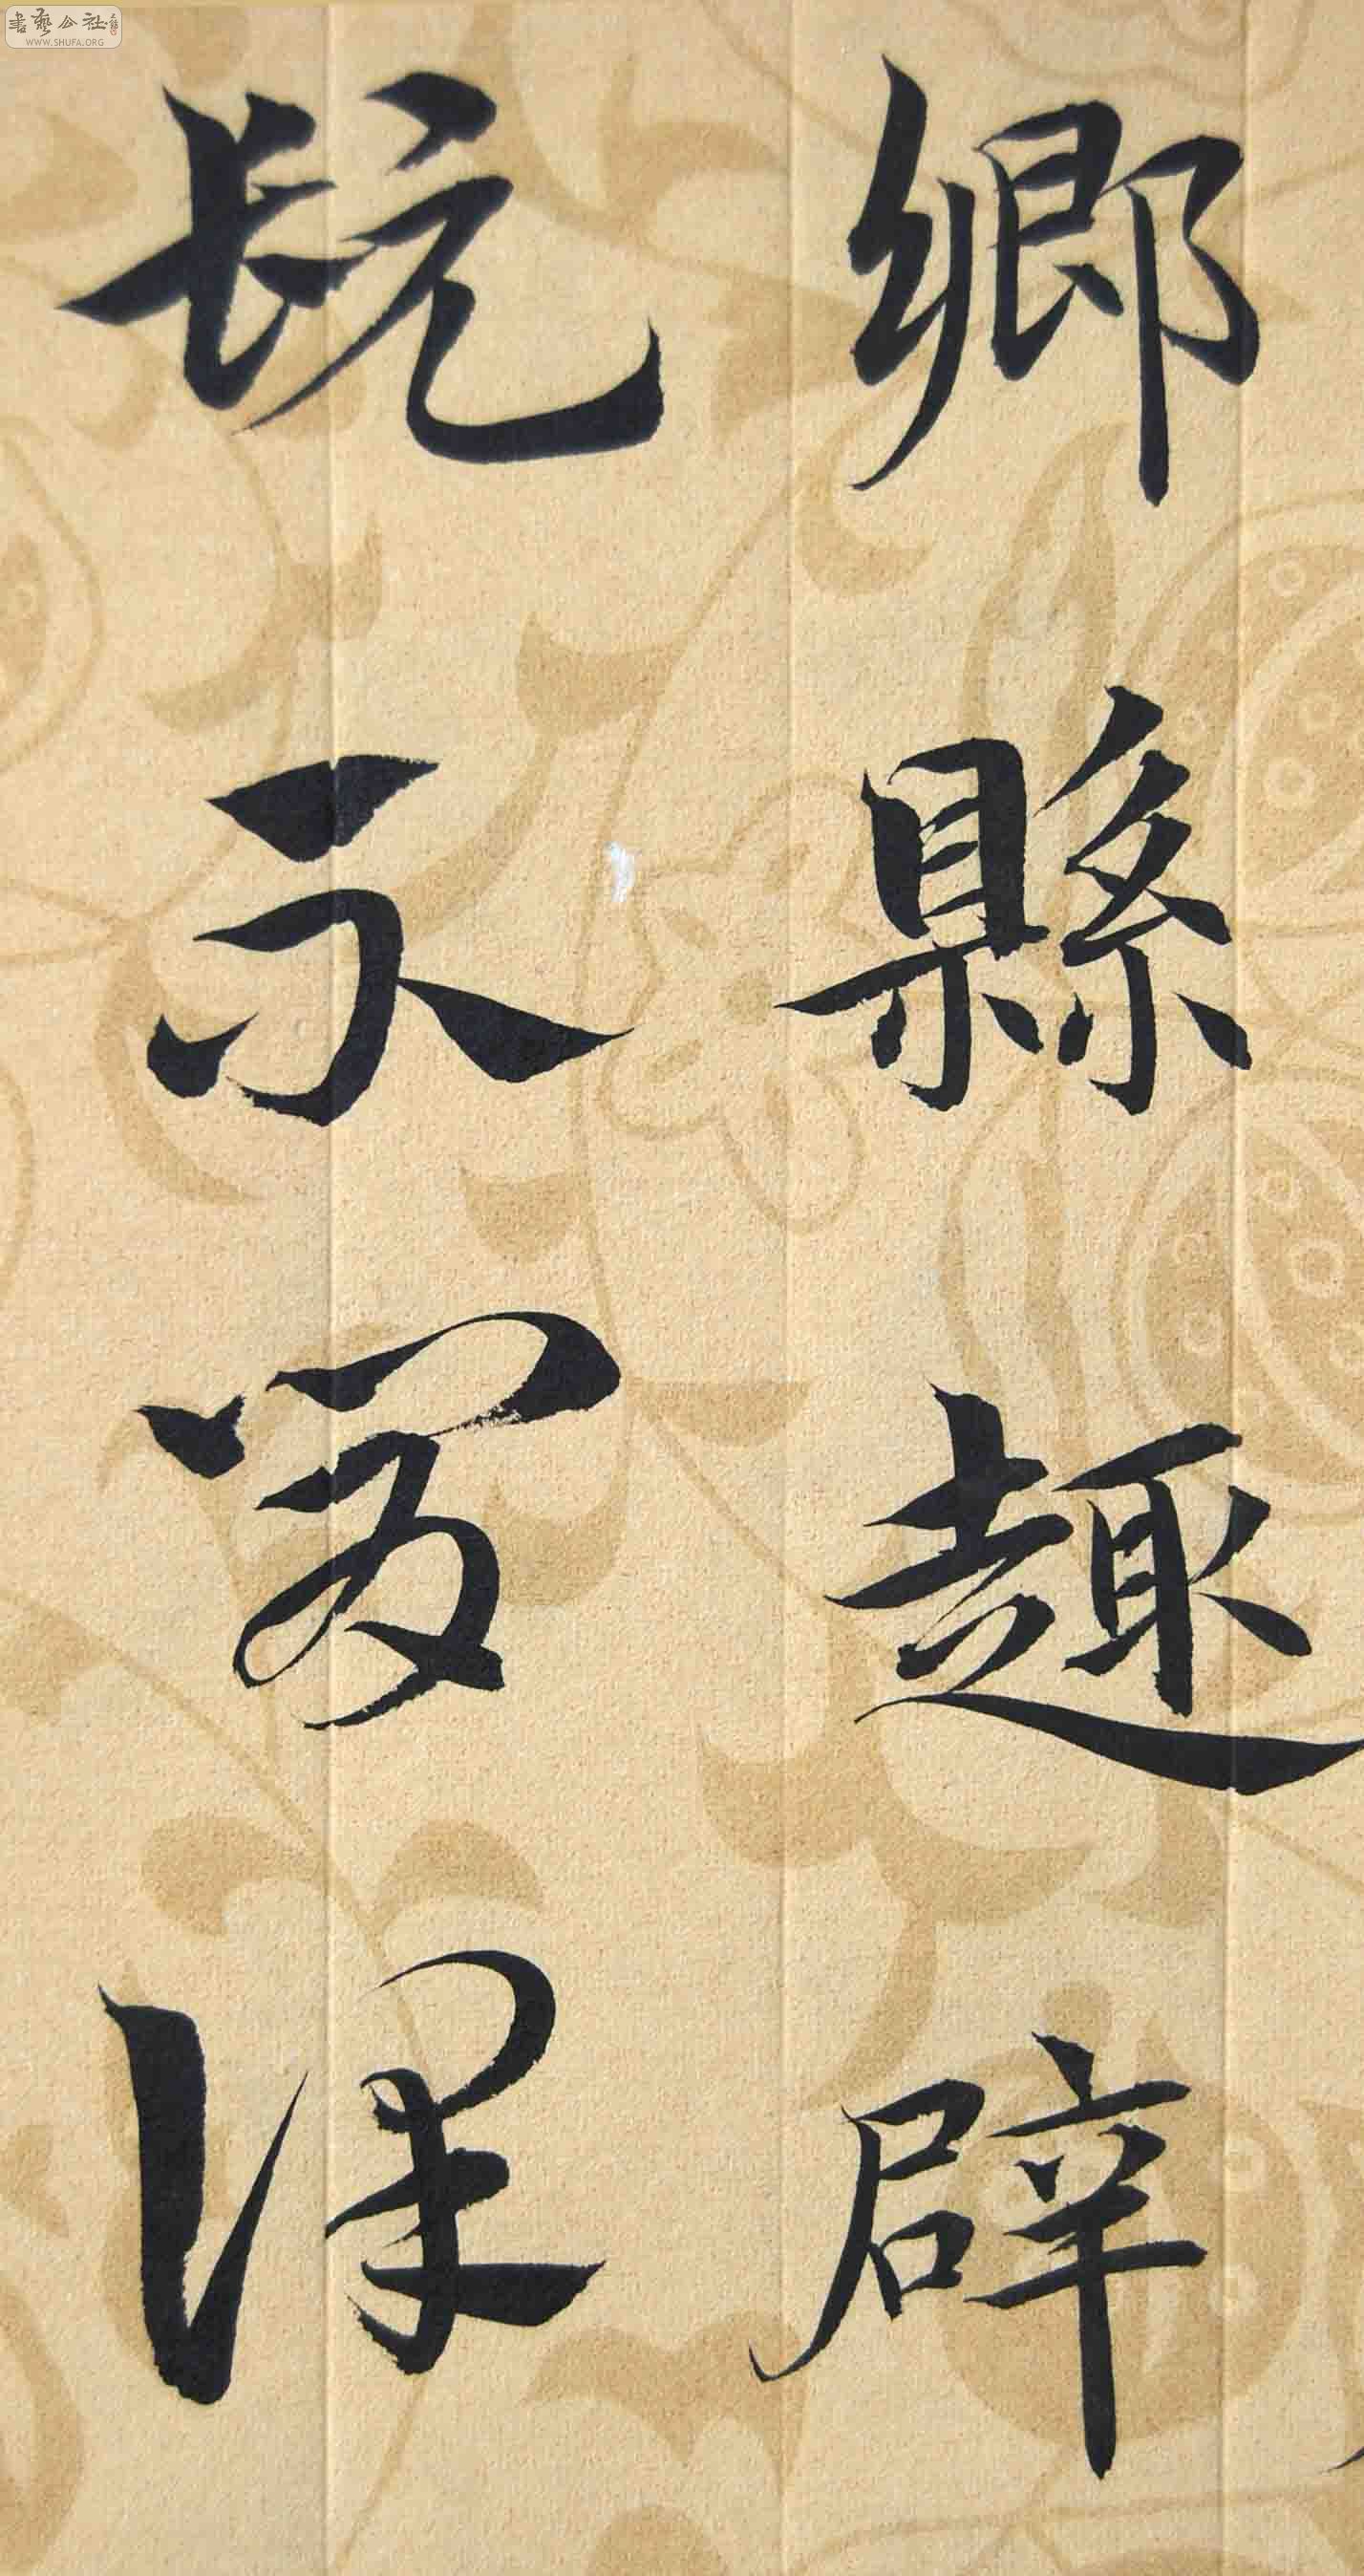 書藝公社
WWW.SHUFA.ORG
鄉縣趣辟
既永保